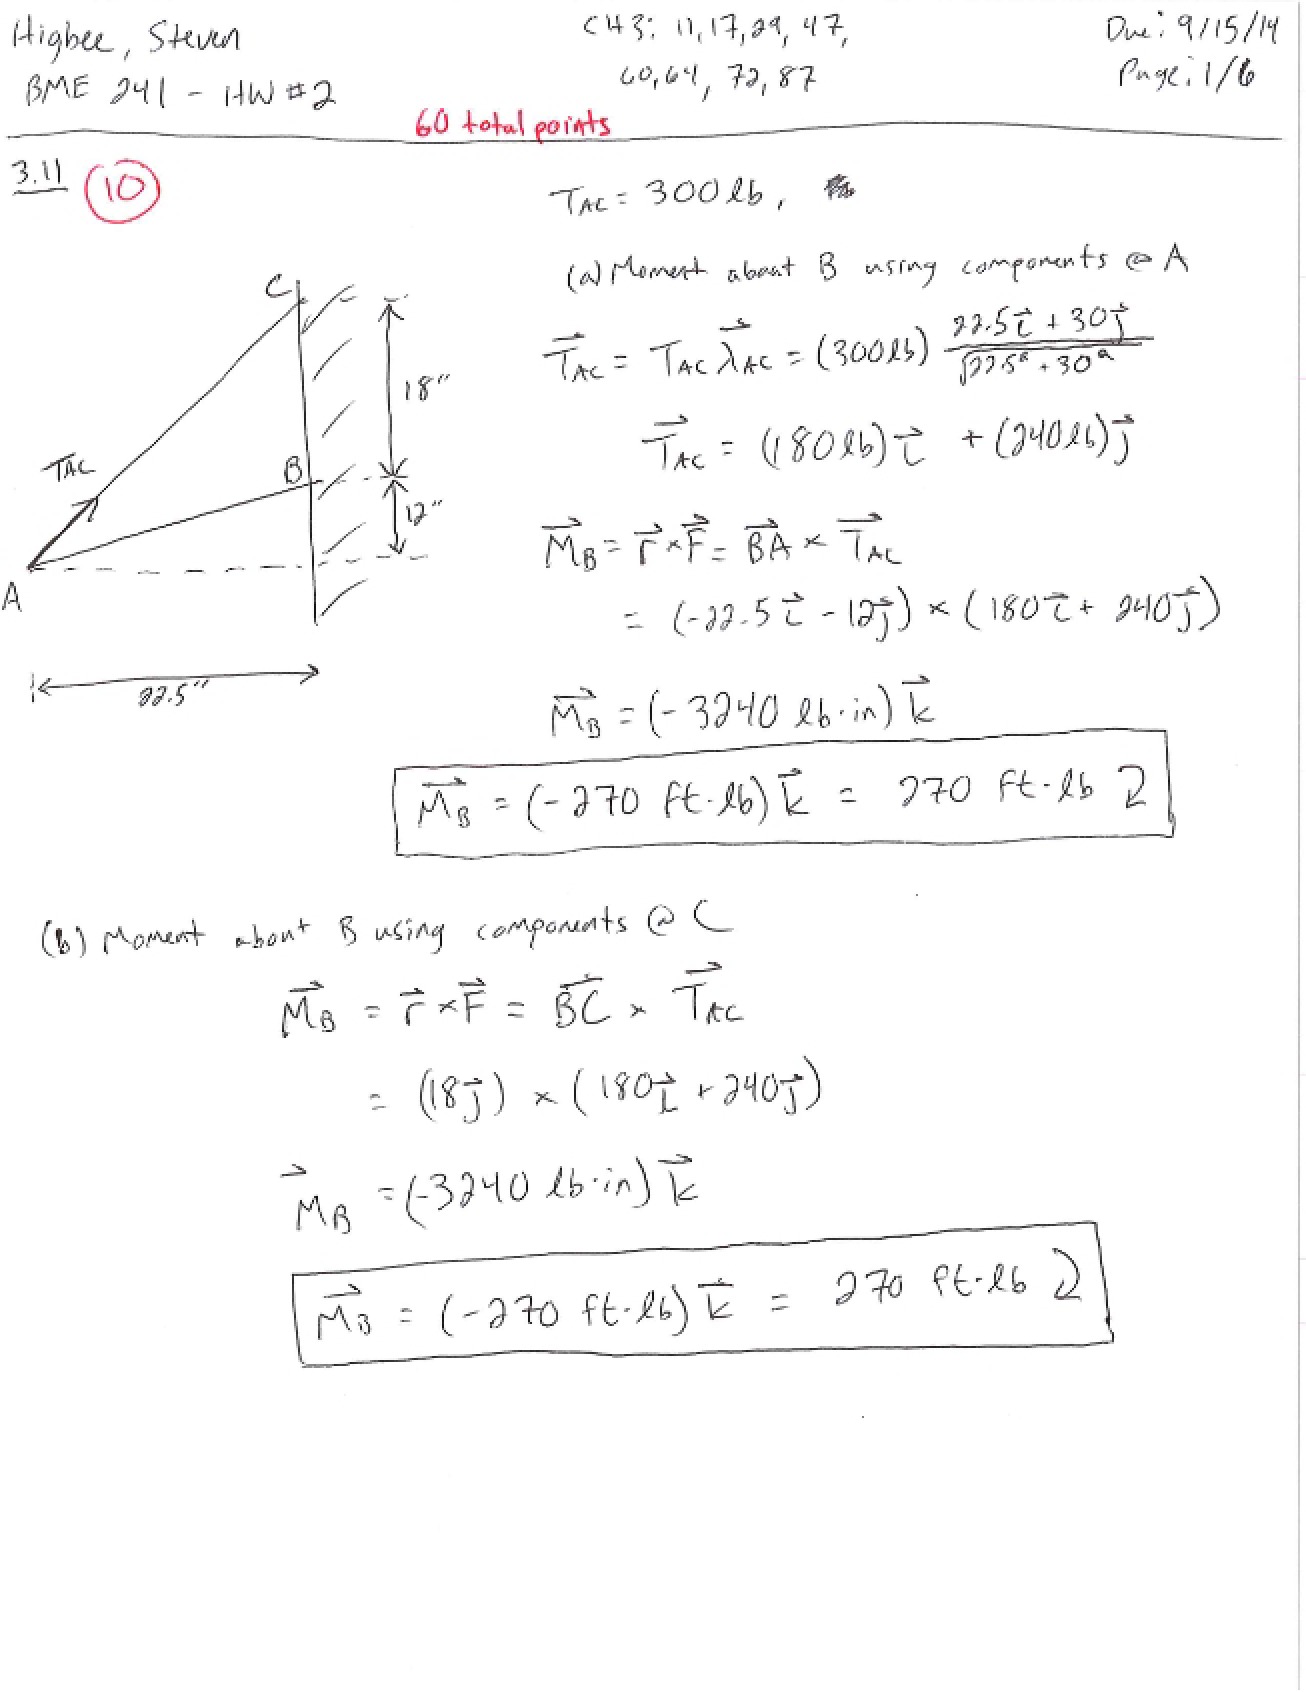 Higbee, Steven
BME 241 - HW #2
CH3: 11,17,29, 47,
60,64, 72,87
Due: 9/15/14
Page: 1/6
60 total points
3.11 (10)
T_AC = 300 lb,
(a) Moment about B using components @ A
T⃗_AC = T_AC λ⃗_AC = (300 lb) (22.5i⃗ + 30j⃗)/√(22.5² + 30²)
T⃗_AC = (180 lb)i⃗ + (240 lb)j⃗
M⃗_B = r⃗ × F⃗ = BA⃗ × T⃗_AC
= (-22.5i⃗ - 12j⃗) × (180i⃗ + 240j⃗)
M⃗_B = (-3240 lb·in) k⃗
M⃗_B = (-270 ft·lb) k⃗ = 270 ft-lb ↻
C
18"
T_AC
B
12"
A
22.5"
(b) Moment about B using components @ C
M⃗_B = r⃗ × F⃗ = BC⃗ × T⃗_AC
= (18j⃗) × (180i⃗ + 240j⃗)
M⃗_B = (-3240 lb·in) k⃗
M⃗_B = (-270 ft·lb) k⃗ = 270 ft-lb ↻